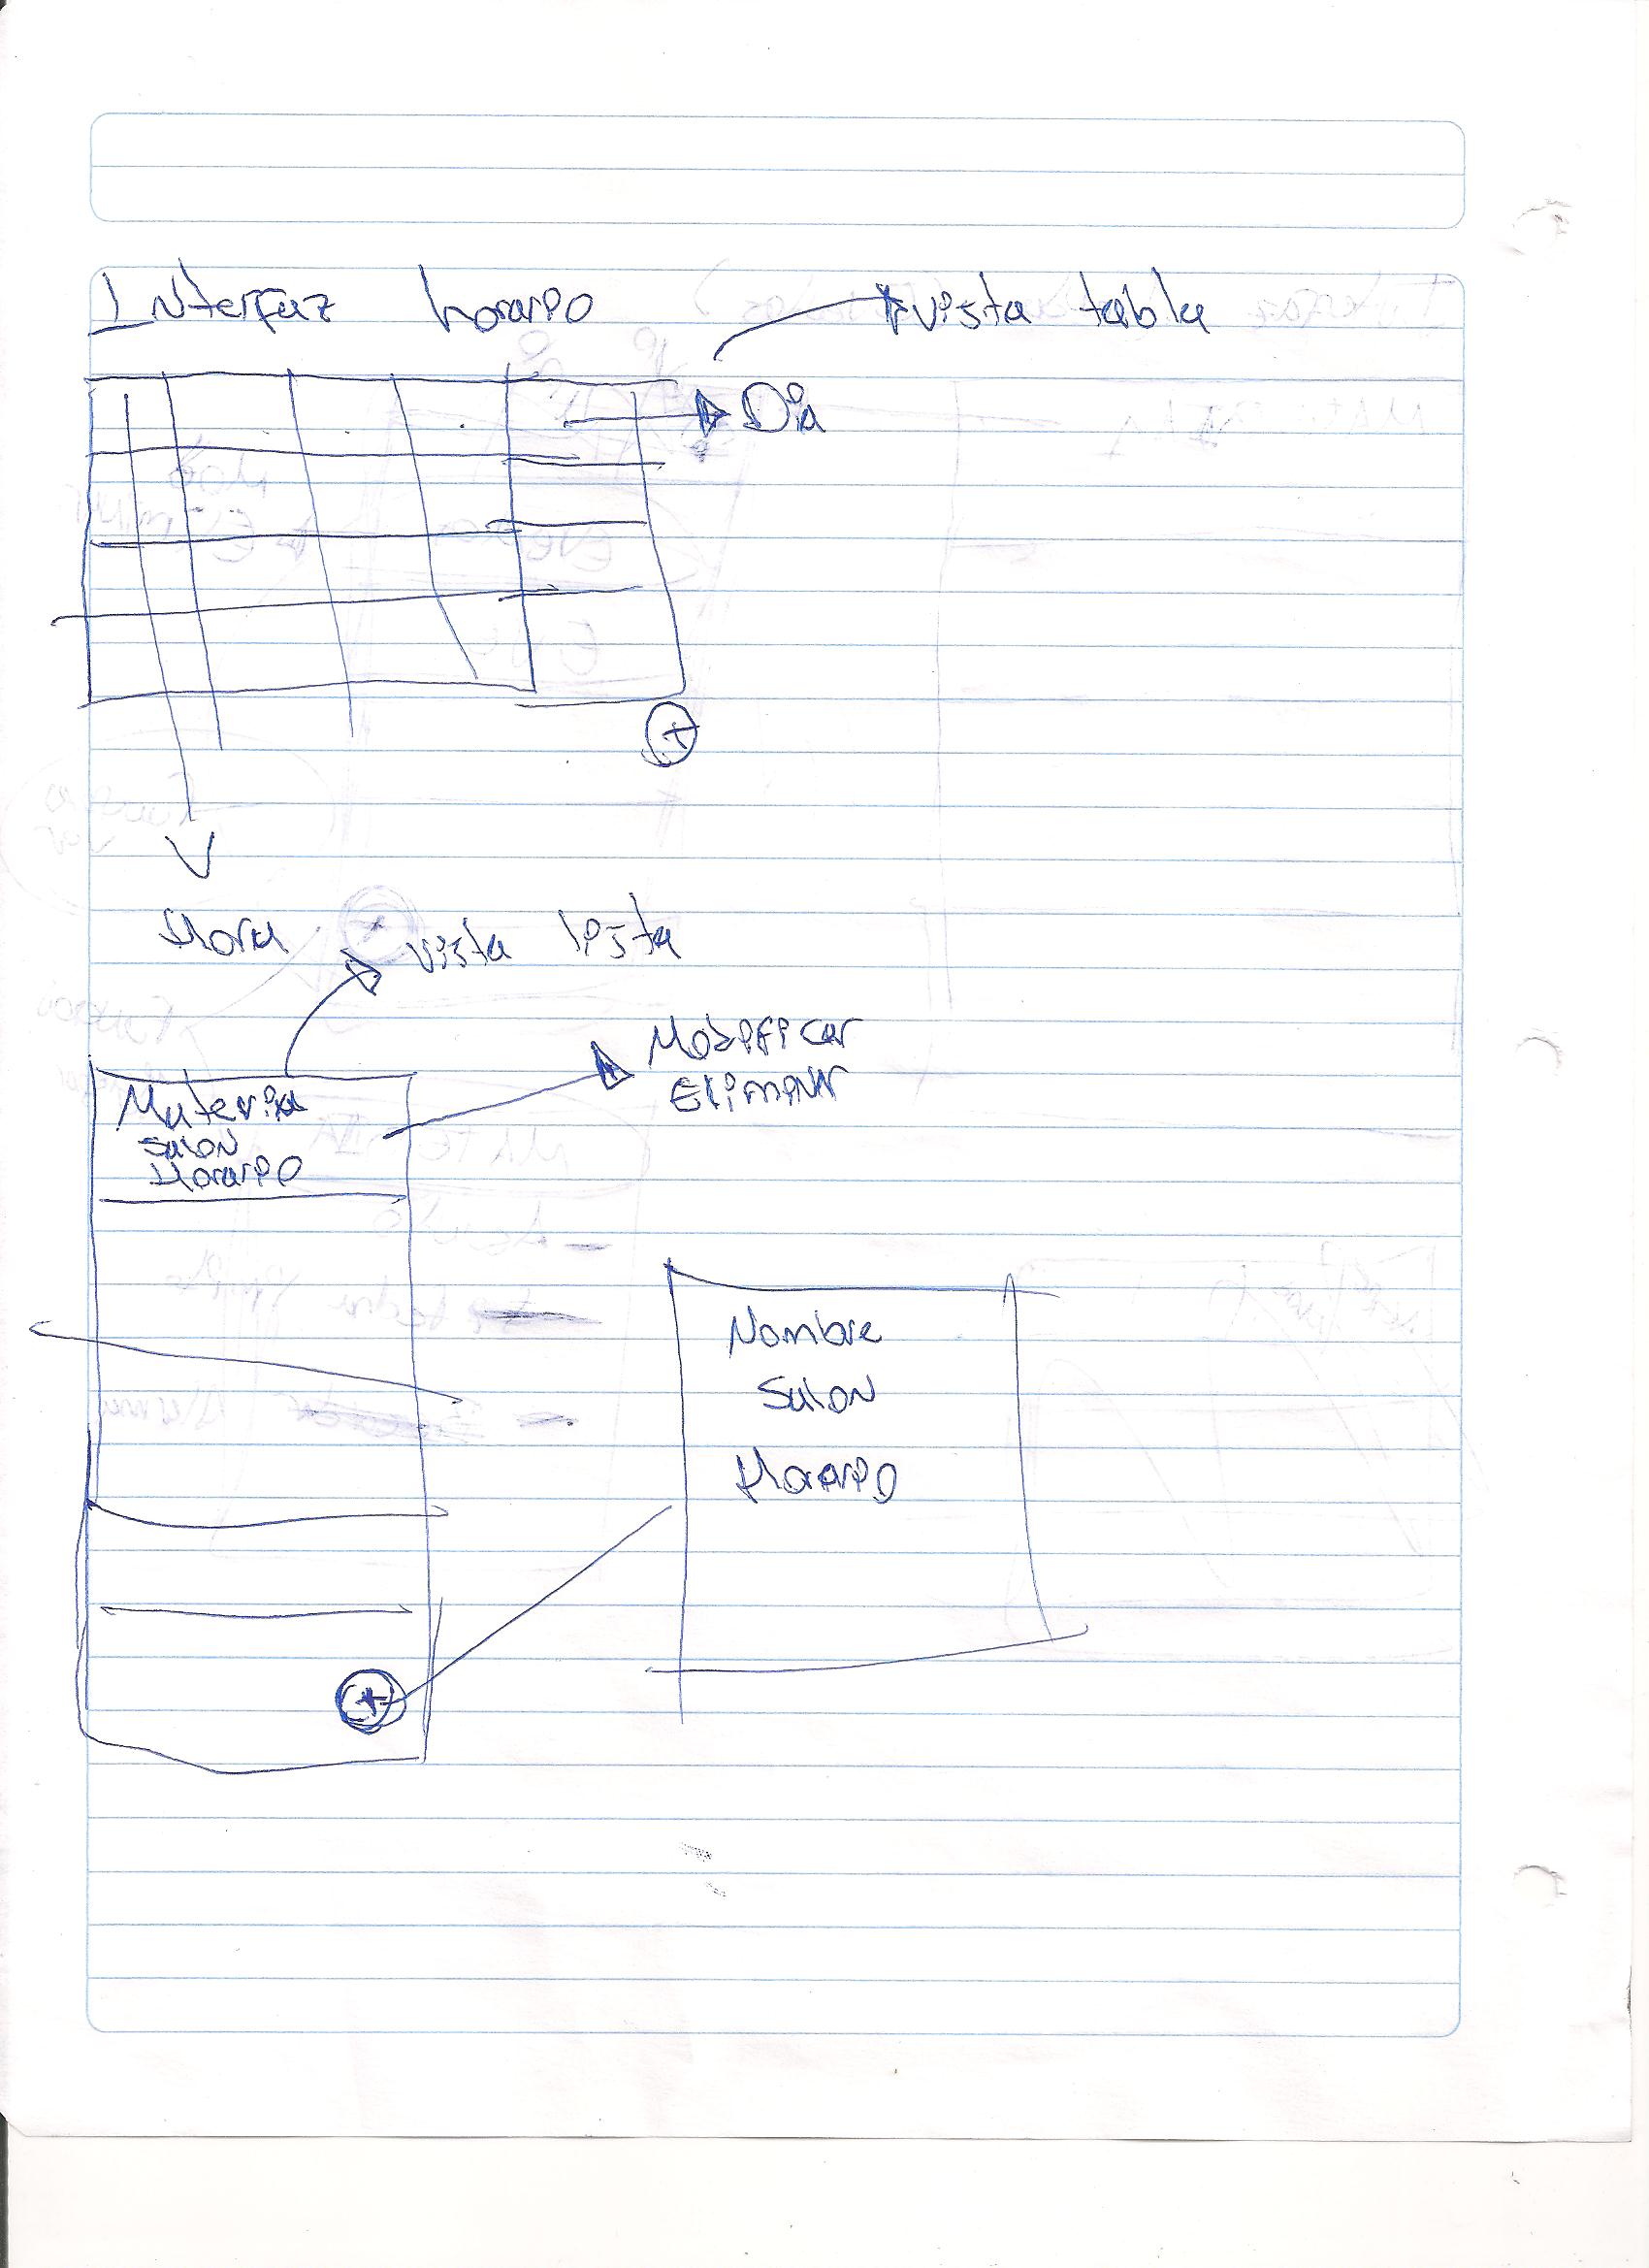 Interfaz horario
vista tabla
Dia
+
Hora
vista lista
Modificar
Eliminar
Materia
Salon
Horario
Nombre
Salon
Horario
+